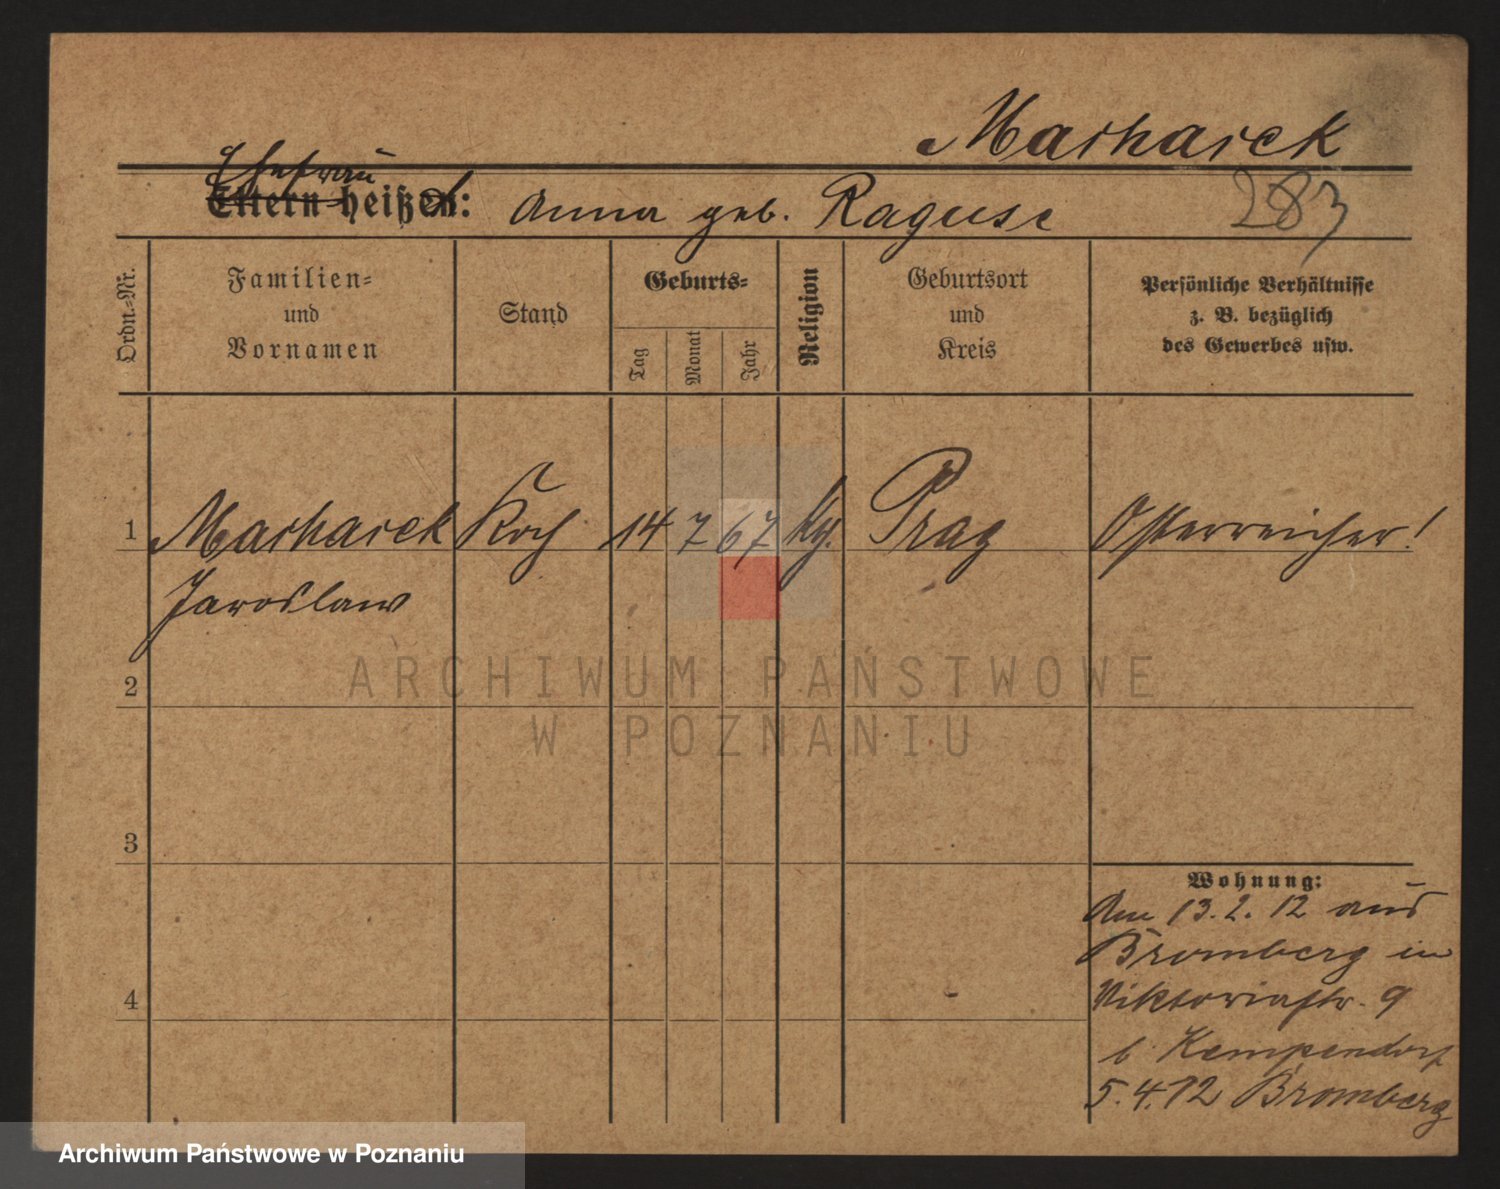 Marharek
Ehefrau
Eltern heißen: Anna geb. Raguse 283
Ordn.=Nr.
Familien=
und
Vornamen
Stand
Geburts=
Tag
Monat
Jahr
Religion
Geburtsort
und
Kreis
Persönliche Verhältnisse
z. B. bezüglich
des Gewerbes usw.
1 Marharek Koch 14 7 67 Prag Österreicher!
Jaroslaw
2
3
4
Wohnung:
Am 13.2.12 aus
Bromberg in
Viktoriastr. 9
b. Kempendorf
5.4.12 Bromberg
ARCHIWUM PAŃSTWOWE
W POZNANIU
Archiwum Państwowe w Poznaniu